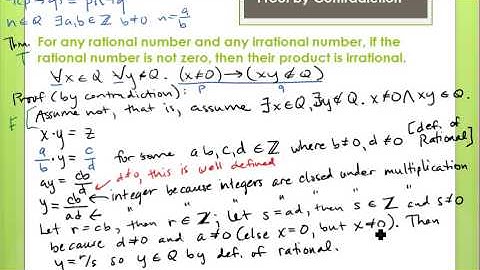 Proof by Contradiction
n ∈ Q ∃a,b ∈ ℤ b≠0 n = a/b
Thm.
For any rational number and any irrational number, if the
rational number is not zero, then their product is irrational.
T ∀x∈Q ∀y∉Q. (x≠0) → (xy ∉ Q)
p q
Proof (by contradiction):
F [Assume not, that is, assume ∃x∈Q, ∃y∉Q. x≠0 ∧ xy ∈ Q.
x·y = z
a/b · y = c/d for some a,b,c,d ∈ ℤ where b≠0, d≠0 [def. of Rational]
ay = cb/d ← d≠0, this is well defined
y = cb/ad ← integer because integers are closed under multiplication
← " " " " " " "
Let r = cb, then r ∈ ℤ; let s = ad, then s ∈ ℤ and s≠0
because d≠0 and a≠0 (else x=0, but x≠0). Then
y = r/s so y ∈ Q by def. of rational.